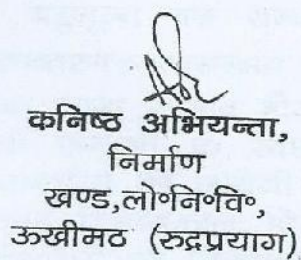 कनिष्ठ अभियन्ता,
निर्माण
खण्ड,लो०नि०वि०,
ऊखीमठ (रुद्रप्रयाग)